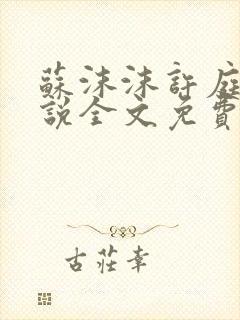 蘇沫沫許庭
說全文免費
古莊幸